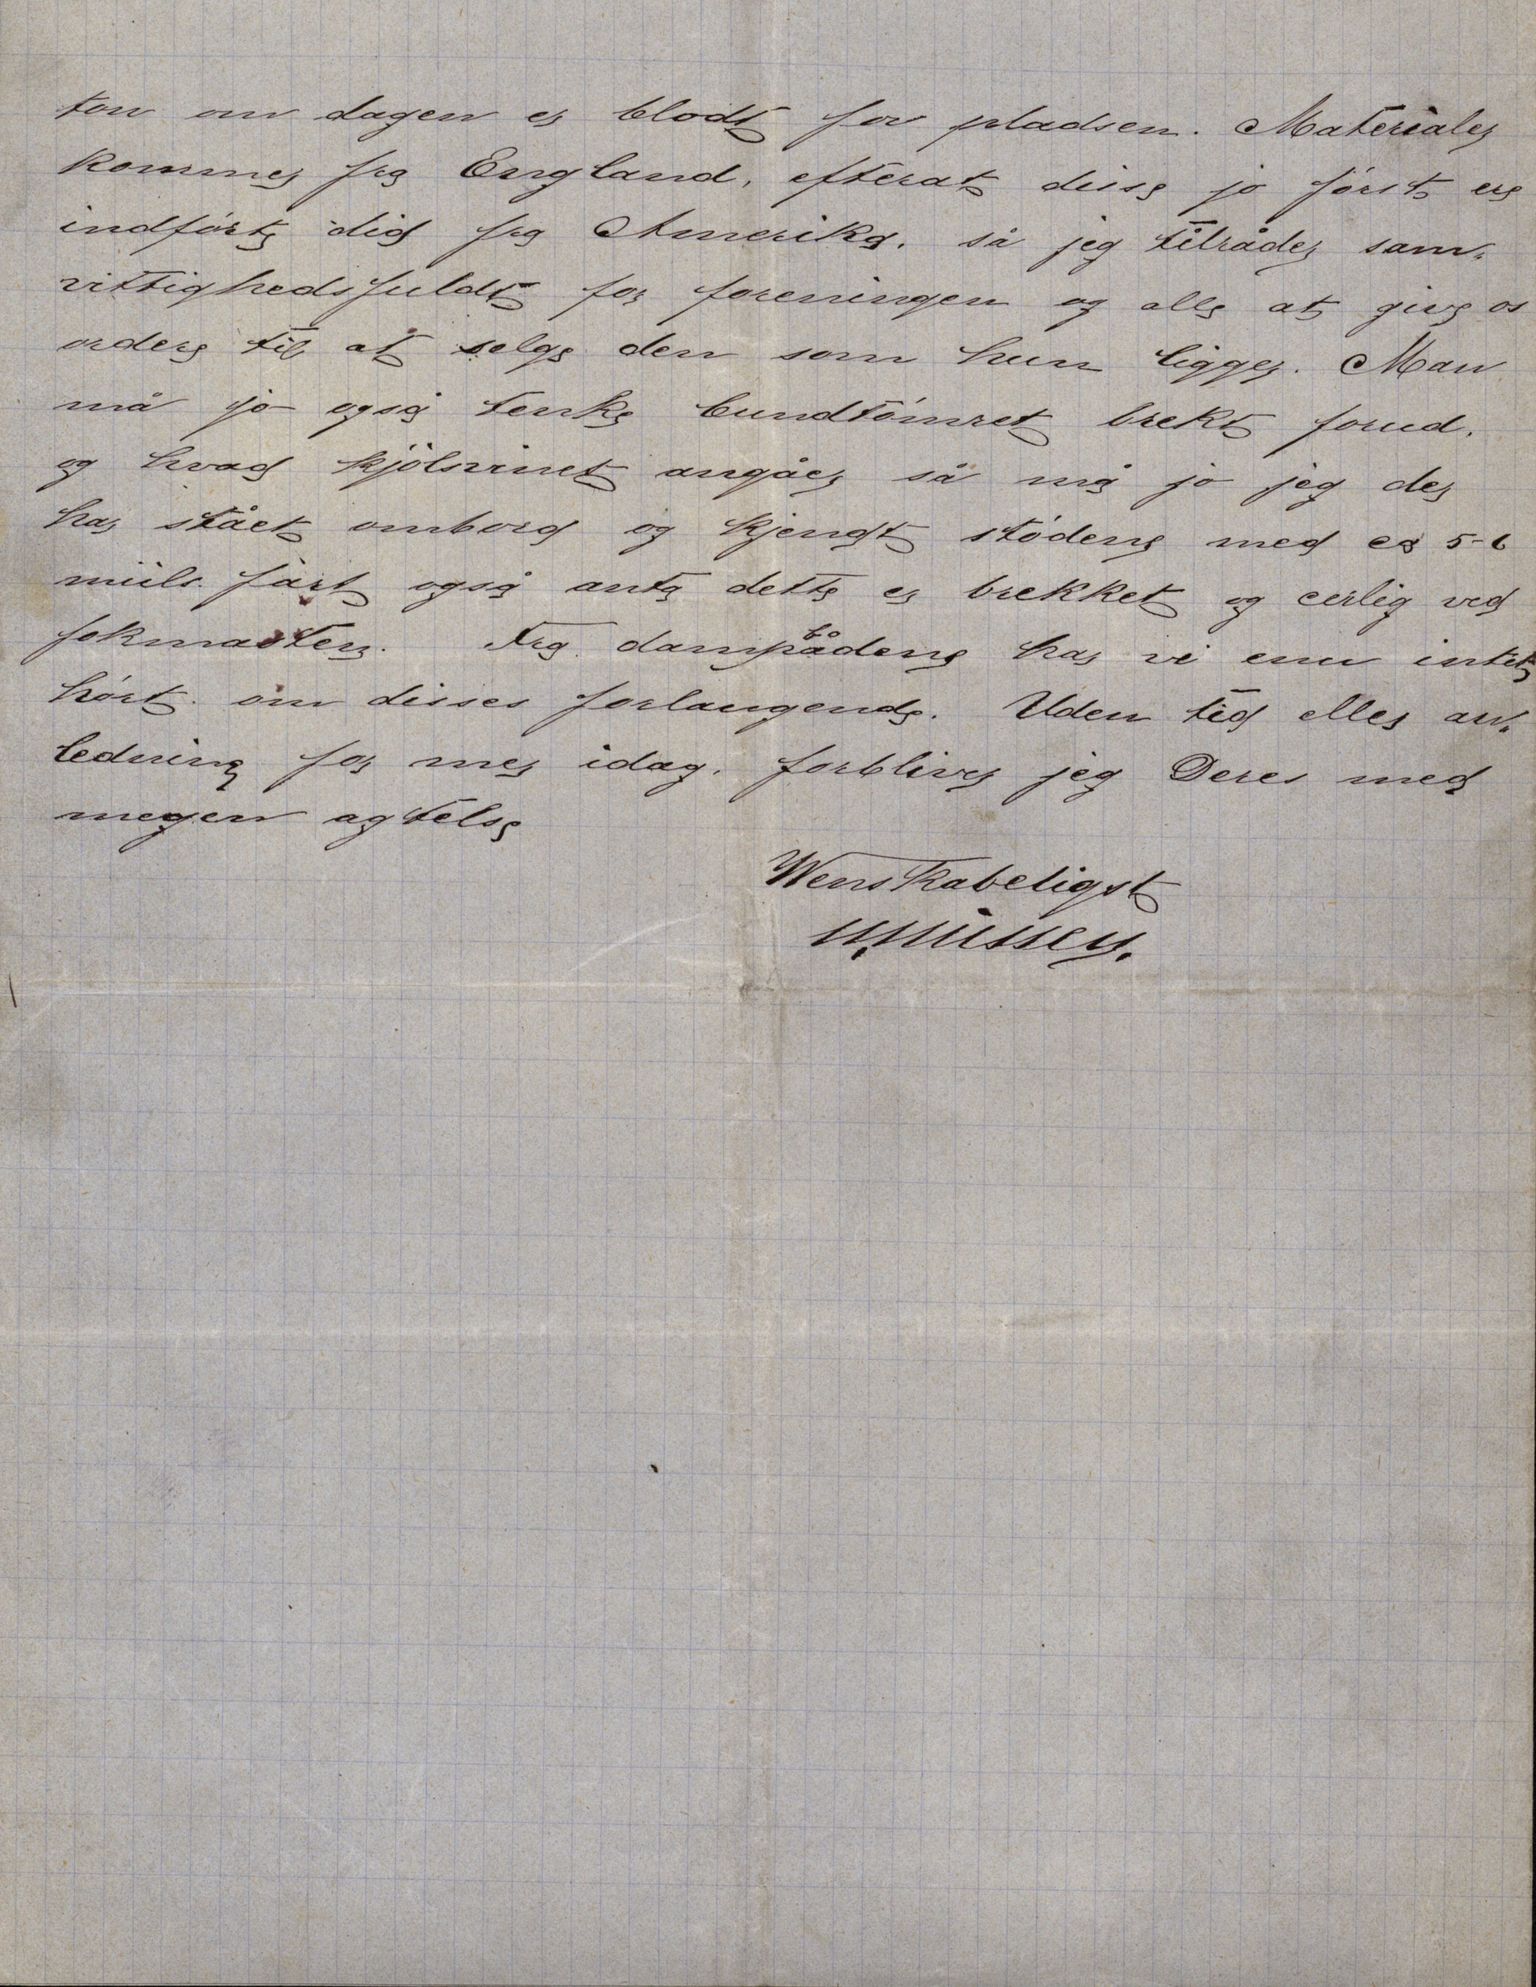 ton om dagen er blodt for pladsen. Materialer
kommer fra England, efterat disse jo först ere
indförte did fra Amerika. så jeg tilråder sam-
vittighedsfuldt for foreningen og alle at give os
orders til at selge den som hun ligger. Man
må jo også tenke bundtömret brekt forud,
og hvad kjölsvinet angåer så må jo jeg der
har stået ombord og kjendt stödene med ca 5-6
miils fart også anta dette er brekket og cerlig ved
fokmasten. Fra dampbådene har vi enu intet
hört om disses forlangende. Uden tid eller an-
ledning for mer idag, forbliver jeg Deres med
megen agtelse
Wenskabeligst